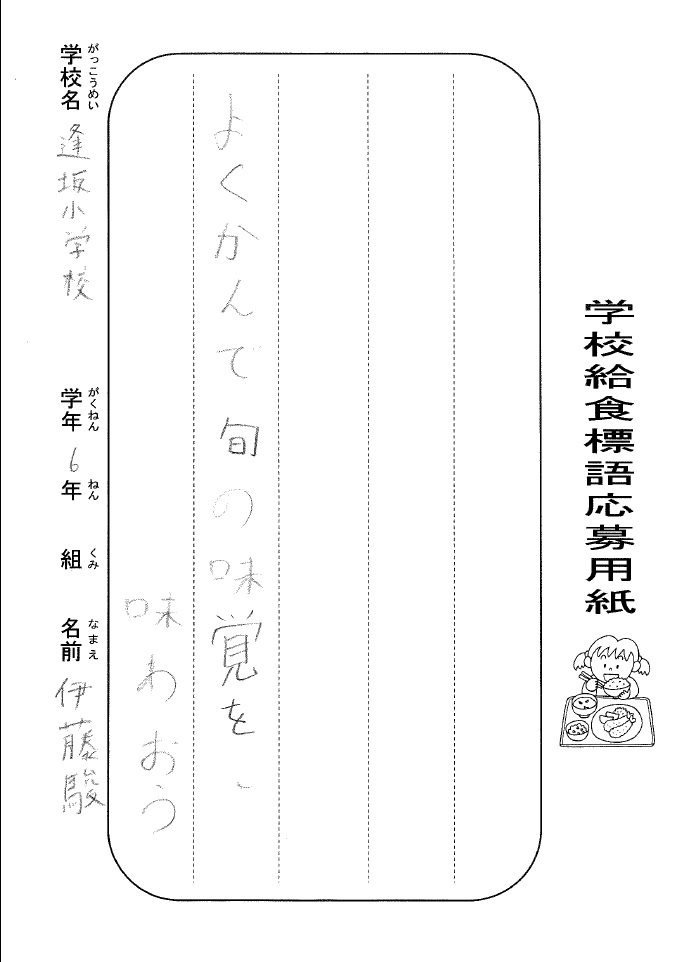 学校給食標語応募用紙
よくかんで旬の味覚を、
味わおう
学校名 逢坂小学校 学年 6年 組 名前 伊藤駿
がっこうめい がくねん ねん くみ なまえ